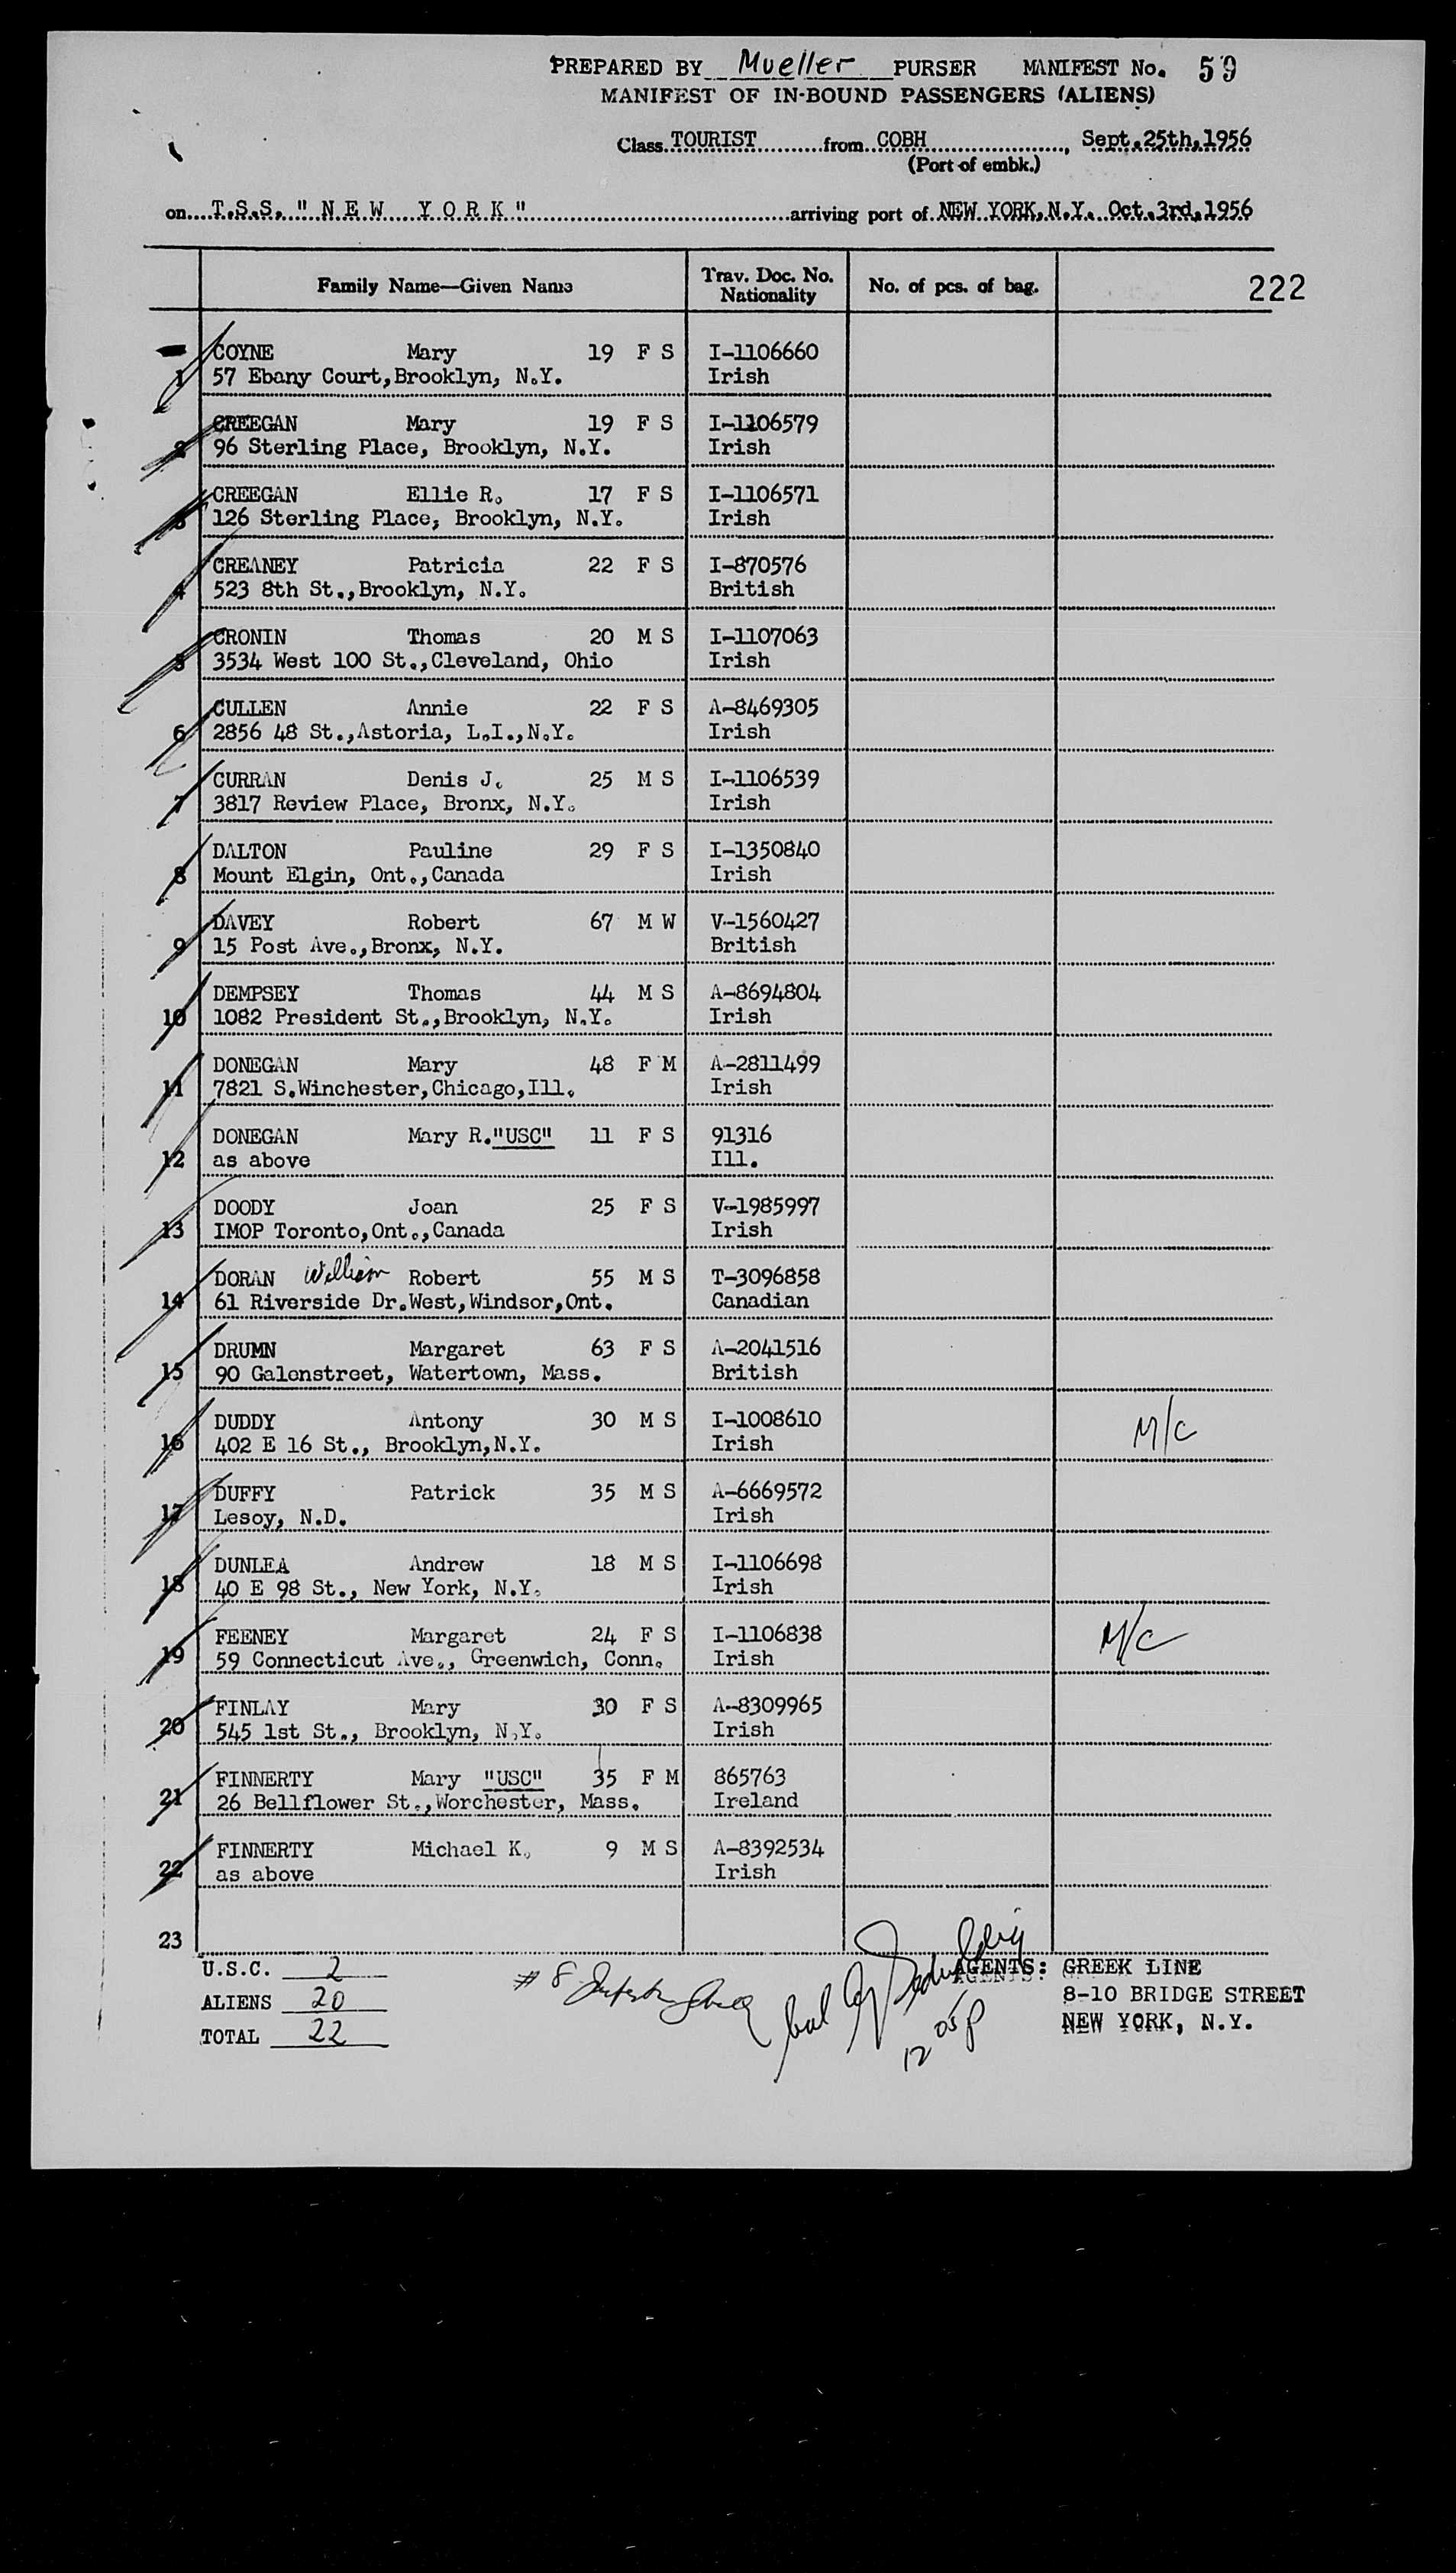 PREPARED BY Mueller PURSER MANIFEST No. 59
MANIFEST OF IN-BOUND PASSENGERS (ALIENS)
Class TOURIST from COBH, Sept. 25th, 1956
(Port of embk.)
on T.S.S. "NEW YORK" arriving port of NEW YORK, N.Y. Oct. 3rd, 1956
Family Name—Given Name Trav. Doc. No. Nationality No. of pcs. of bag. 222
COYNE Mary 19 F S I-1106660
1 57 Ebany Court, Brooklyn, N.Y. Irish
CREEGAN Mary 19 F S I-1106579
2 96 Sterling Place, Brooklyn, N.Y. Irish
CREEGAN Ellie R. 17 F S I-1106571
3 126 Sterling Place, Brooklyn, N.Y. Irish
CREANEY Patricia 22 F S I-870576
4 523 8th St., Brooklyn, N.Y. British
CRONIN Thomas 20 M S I-1107063
5 3534 West 100 St., Cleveland, Ohio Irish
CULLEN Annie 22 F S A-8469305
6 2856 48 St., Astoria, L.I., N.Y. Irish
CURRAN Denis J. 25 M S I-1106539
7 3817 Review Place, Bronx, N.Y. Irish
DALTON Pauline 29 F S I-1350840
8 Mount Elgin, Ont., Canada Irish
DAVEY Robert 67 M W V-1560427
9 15 Post Ave., Bronx, N.Y. British
DEMPSEY Thomas 44 M S A-8694804
10 1082 President St., Brooklyn, N.Y. Irish
DONEGAN Mary 48 F M A-2811499
11 7821 S. Winchester, Chicago, Ill. Irish
DONEGAN Mary R. "USC" 11 F S 91316
12 as above Ill.
DOODY Joan 25 F S V-1985997
13 IMOP Toronto, Ont., Canada Irish
DORAN William Robert 55 M S T-3096858
14 61 Riverside Dr. West, Windsor, Ont. Canadian
DRUMN Margaret 63 F S A-2041516
15 90 Galenstreet, Watertown, Mass. British
DUDDY Antony 30 M S I-1008610 M/C
16 402 E 16 St., Brooklyn, N.Y. Irish
DUFFY Patrick 35 M S A-6669572
17 Lesoy, N.D. Irish
DUNLEA Andrew 18 M S I-1106698
18 40 E 98 St., New York, N.Y. Irish
FEENEY Margaret 24 F S I-1106838 M/C
19 59 Connecticut Ave., Greenwich, Conn. Irish
FINLAY Mary 30 F S A-8309965
20 545 1st St., Brooklyn, N.Y. Irish
FINNERTY Mary "USC" 35 F M 865763
21 26 Bellflower St., Worchester, Mass. Ireland
FINNERTY Michael K. 9 M S A-8392534
22 as above Irish
23
U.S.C. 2 # 8 AGENTS: GREEK LINE
ALIENS 20 8-10 BRIDGE STREET
TOTAL 22 12 05 P NEW YORK, N.Y.